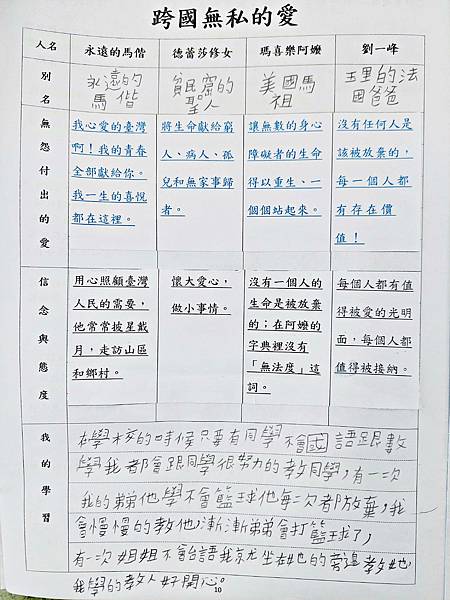 跨國無私的愛
人名 永遠的馬偕 德蕾莎修女 瑪喜樂阿嬤 劉一峰
別名
永遠的
馬偕
貧民窟的
聖人
美國馬
祖
玉里的法
國爸爸
無怨付出的愛
我心愛的臺灣
啊!我的青春
全部獻給你。
我一生的喜悅
都在這裡。
將生命獻給窮
人、病人、孤
兒和無家事歸
者。
讓無數的身心
障礙者的生命
得以重生、一
個個站起來。
沒有任何人是
該被放棄的,
每一個人都
有存在價
值!
信念與態度
用心照顧臺灣
人民的需要,
他常常披星戴
月,走訪山區
和鄉村。
懷大愛心,
做小事情。
沒有一個人的
生命是被放棄
的;在阿嬤的
字典裡沒有
「無法度」這
詞。
每個人都有值
得被愛的光明
面,每個人都
值得被接納。
我的學習
在學校的時候只要有同學不會國語跟數
學我都會跟同學很努力的教同學,有一次
我的弟弟他學不會籃球他每次都放棄,我
會慢慢的教他,漸漸弟弟會打籃球了,
有一次姐姐不會台語我就坐在她的旁邊教她,
我學的教人好開心。
10